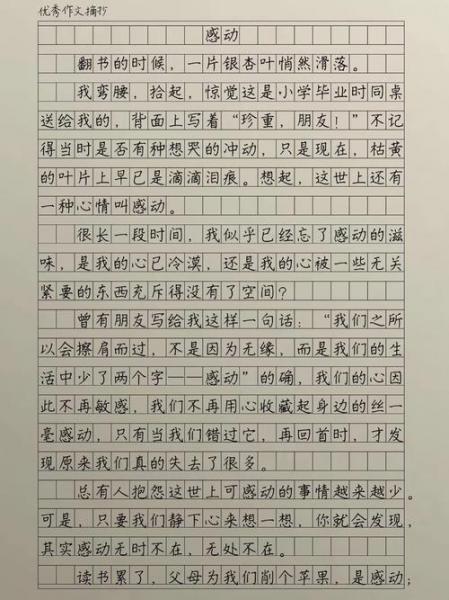 优秀作文摘抄
感动
翻书的时候，一片银杏叶悄然滑落。
我弯腰，拾起，惊觉这是小学毕业时同桌
送给我的，背面上写着“珍重，朋友！”不记
得当时是否有种想哭的冲动，只是现在，枯黄
的叶片上早已是滴滴泪痕。想起，这世上还有
一种心情叫感动。
很长一段时间，我似乎已经忘了感动的滋
味，是我的心已冷漠，还是我的心被一些无关
紧要的东西充斥得没有了空间？
曾有朋友写给我这样一句话：“我们之所
以会擦肩而过，不是因为无缘，而是我们的生
活中少了两个字——感动”的确，我们的心因
此不再敏感，我们不再用心收藏起身边的丝一
毫感动，只有当我们错过它，再回首时，才发
现原来我们真的失去了很多。
总有人抱怨这世上可感动的事情越来越少。
可是，只要我们静下心来想一想，你就会发现，
其实感动无时不在，无处不在。
读书累了，父母为我们削个苹果，是感动；